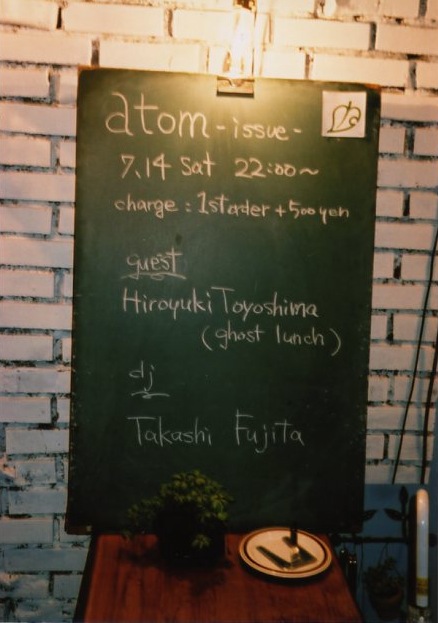 atom - issue -
7.14 Sat 22:00~
charge : 1st order + 500 yen
guest
Hiroyuki Toyoshima
(ghost lunch)
dj
Takashi Fujita